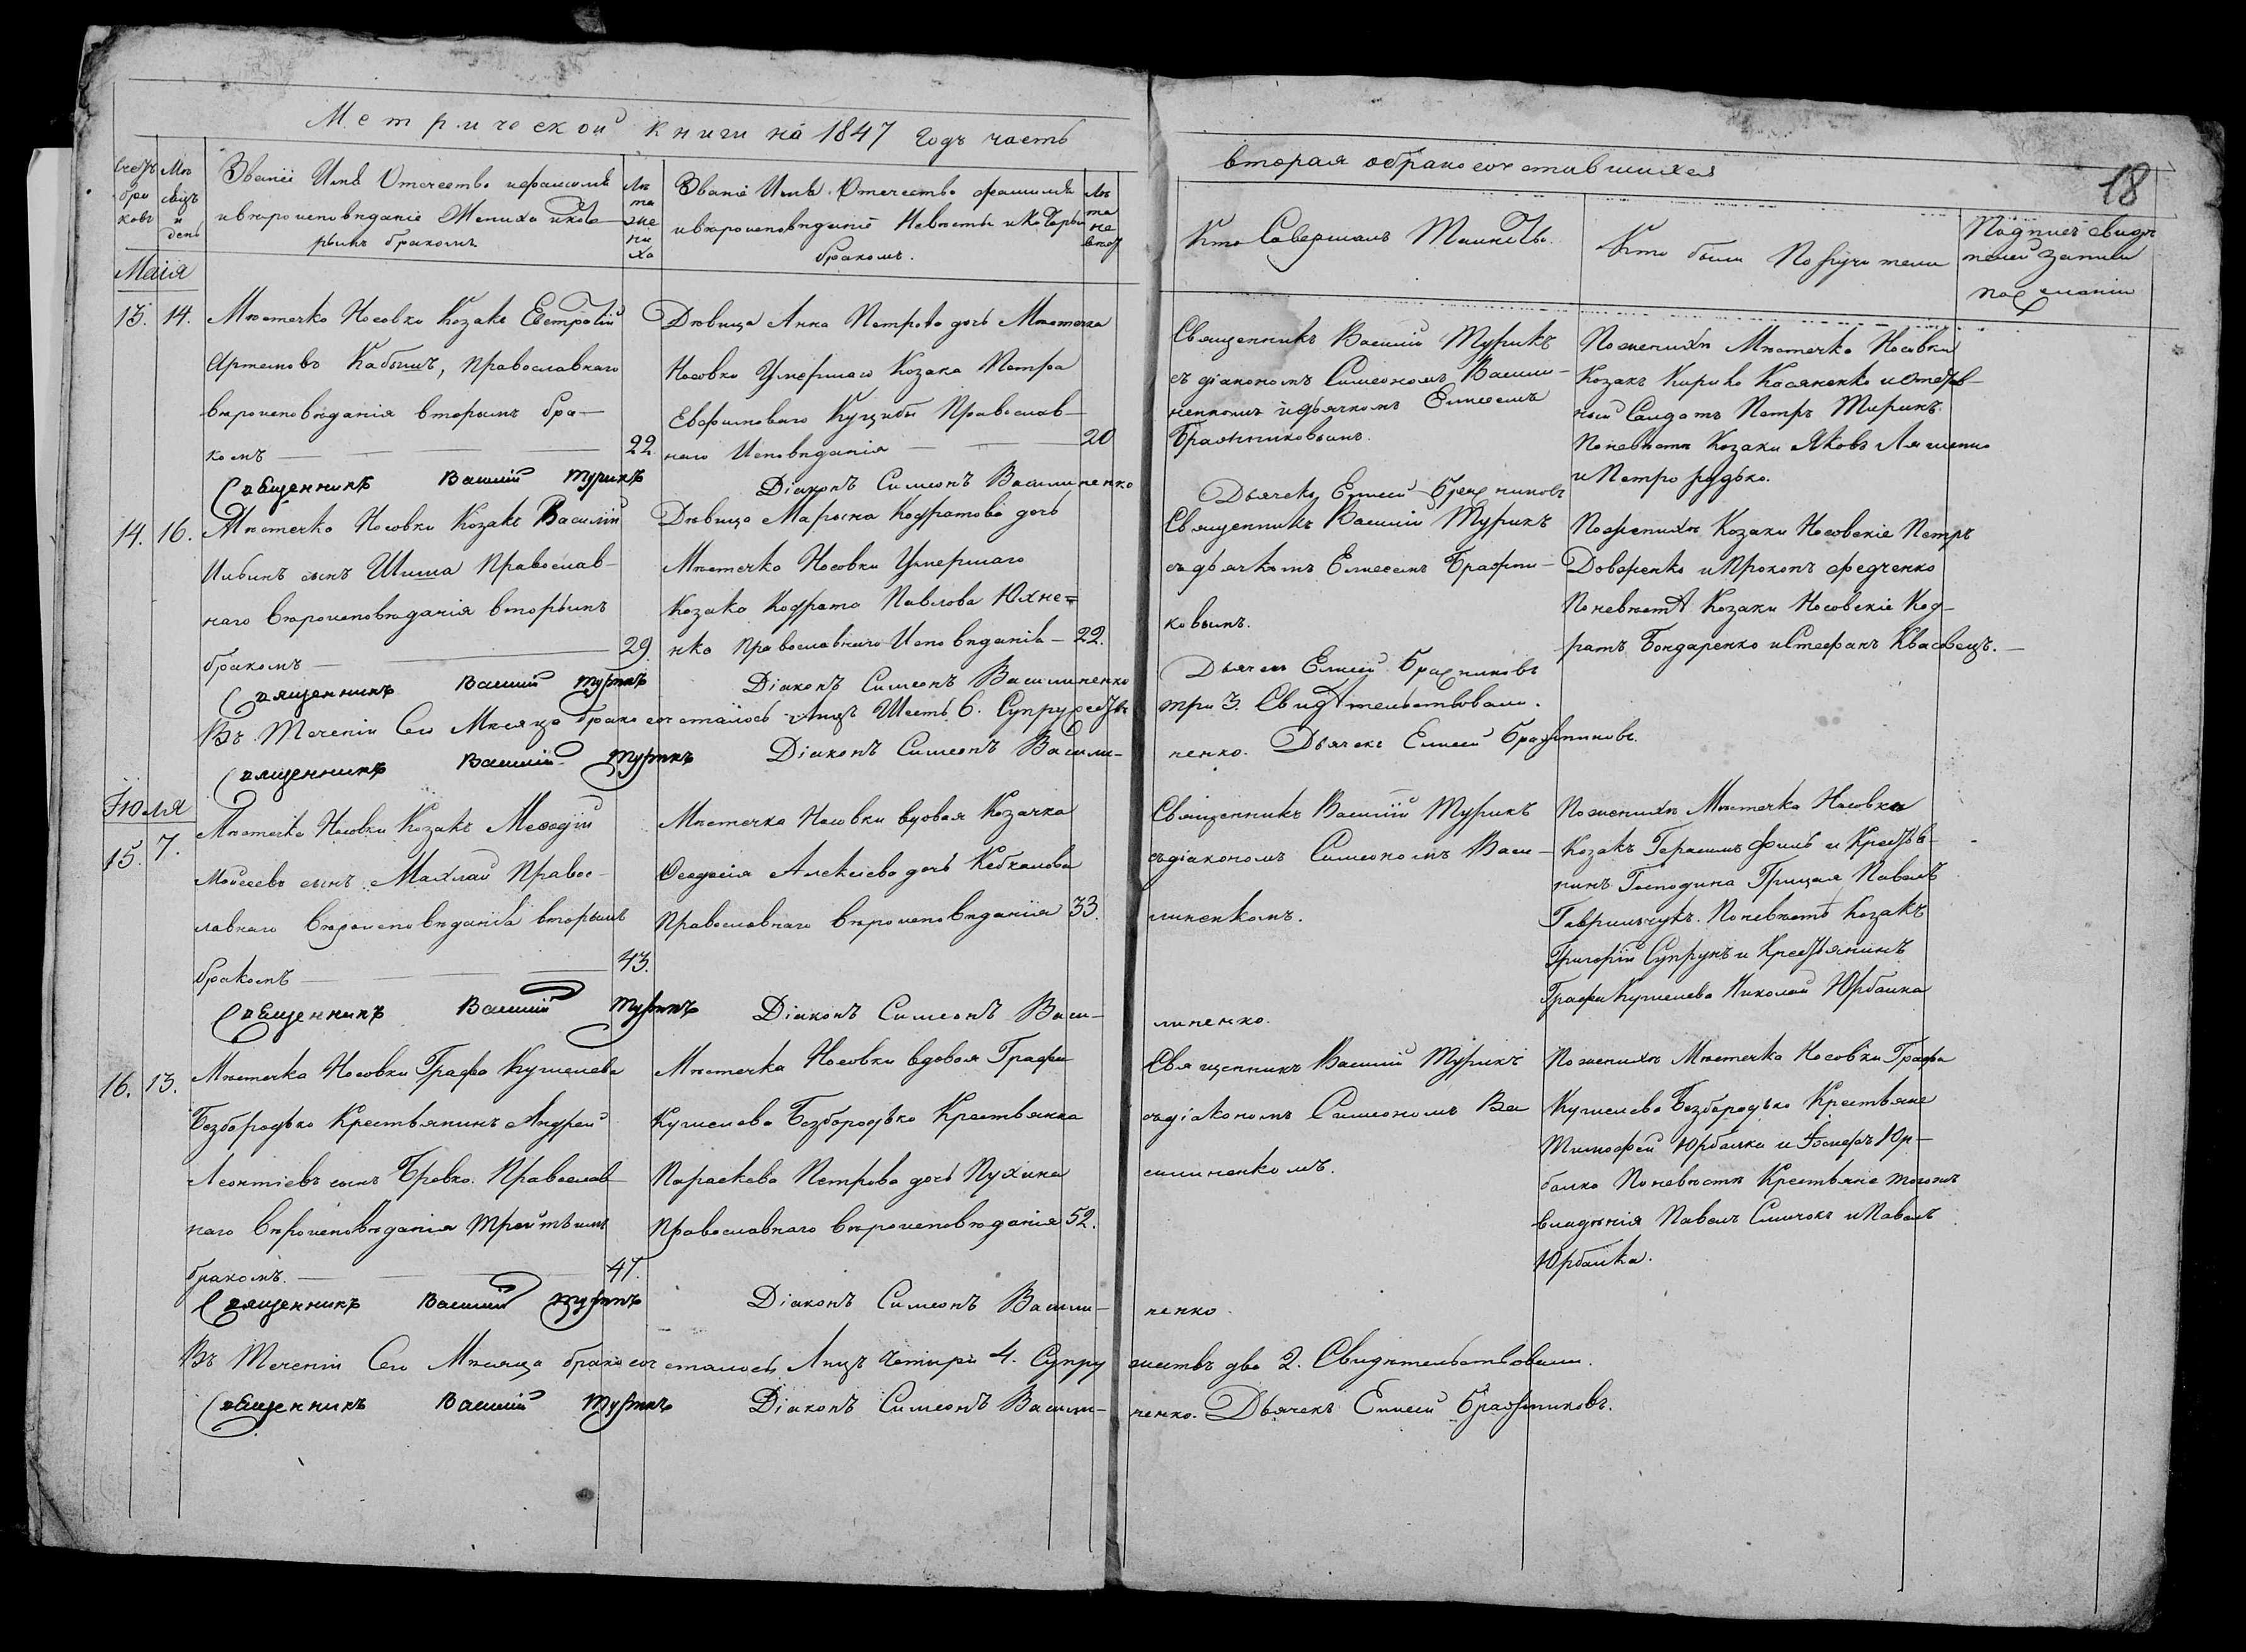 Метрической книги на 1847 годъ часть
вторая о бракосочетавшихся
18
Счетъ браковъ
Мѣсяцъ и день
Званіе Имя Отечество и фамилія
и вѣроисповѣданіе Жениха и кото-
рымъ бракомъ
Лѣта жениха
Званіе Имя Отечество фамилія
и вѣроисповѣданіе Невѣсты и которымъ
бракомъ.
Лѣта невѣсты
Кто Совершалъ Таинство.
Кто были Поручители
Подпись свидѣ
телей записи
по желанію
Маія
13. 14. Мѣстечка Носовки Козакъ Евстротій
Артемовъ Кабышъ, православнаго
вѣроисповѣданія вторымъ бра-
комъ 22.
Дѣвица Анна Петрова дочь Мѣстечка
Носовки Умершаго Козака Петра
Евфимоваго Куцибы Православ-
наго Исповѣданія 20
Священникъ Василій Турикъ
съ діакономъ Симеономъ Васили-
ненкомъ и дьячкомъ Елисеемъ
Бражниковымъ.
По женихѣ Мѣстечка Носовки
Козакъ Кирило Касяненко и отстав-
ный Салдатъ Петръ Тиринъ.
По невѣстѣ Козаки Яковъ Ляшенко
и Петро рудько.
Священникъ Василій Турикъ
Діаконъ Симеонъ Василиненко
Дьячекъ Елисей Бражниковъ
14. 16. Мѣстечка Носовки Козакъ Василій
Ильинъ сынъ Шиша Православ-
наго вѣроисповѣданія вторымъ
бракомъ 29.
Дѣвица Марьяна Кодратова дочь
Мѣстечка Носовки Умершаго
Козака Кодрата Павлова Юхне=
нка православнаго Исповѣданія 22.
Священникъ Василій Турикъ
съ дьячкомъ Елисеемъ Бражни-
ковымъ.
По женихѣ Козаки Носовскіе Петръ
Довженко и Прокопъ Федченко
По невѣстѣ Козаки Носовскіе Код-
ратъ Бондаренко и Стефанъ Квасовецъ.
Священникъ Василій Турикъ
Діаконъ Симеонъ Василиненко
Дьячекъ Елисей Бражниковъ
Въ Теченіи Сего Мѣсяца бракосочеталось Лицъ Шесть 6. Супружествъ
три 3. Свидѣтельствовали.
Священникъ Василій Турикъ
Діаконъ Симеонъ Васили-
ненко. Дьячекъ Елисей Бражниковъ.
Іюля
15. 7. Мѣстечка Носовки Козакъ Мефодій
Моисеевъ сынъ Махлай Право-
славнаго вѣроисповѣданія вторымъ
бракомъ 43.
Мѣстечка Носовки вдовая Козачка
Феодосія Алексѣева дочь Кебкалова
Православнаго вѣроисповѣданія 33.
Священникъ Василій Турикъ
съ діакономъ Симеономъ Васи-
линенкомъ.
По женихѣ Мѣстечка Носовки
Козакъ Герасимъ Филь и Крестья-
нинъ Господина Грицая Павелъ
Гаврильчукъ. По невѣстѣ Козакъ
Григорій Супрунъ и Крестьянинъ
Графа Кушелева Николай Юрбалка
Священникъ Василій Турикъ
Діаконъ Симеонъ Васи-
линенко.
16. 13. Мѣстечка Носовки Графа Кушелева
Безбородько Крестьянинъ Андрей
Леонтіевъ сынъ Бровко. Православ-
наго вѣроисповѣданія третьимъ
бракомъ. 47.
Мѣстечка Носовки вдовая Графа
Кушелева Безбородько Крестьянка
Параскева Петрова дочь Пухина
Православнаго вѣроисповѣданія 52.
Священникъ Василій Турикъ
съ діакономъ Симеономъ Ва
силиненкомъ.
По женихѣ Мѣстечка Носовки Графа
Кушелева Безбородько Крестьяне
Тимофей Юрбалка и Іосифъ Юр-
балка По невѣстѣ Крестьяне того жъ
владѣнія Павелъ Смичокъ и Павелъ
Юрбалка.
Священникъ Василій Турикъ
Діаконъ Симеонъ Васили-
ненко
Въ Теченіи Сего Мѣсяца бракосочеталось Лицъ Четыри 4. Супру
жествъ два 2. Свидѣтельствовали.
Священникъ Василій Турикъ
Діаконъ Симеонъ Васили-
ненко. Дьячекъ Елисей Бражниковъ.